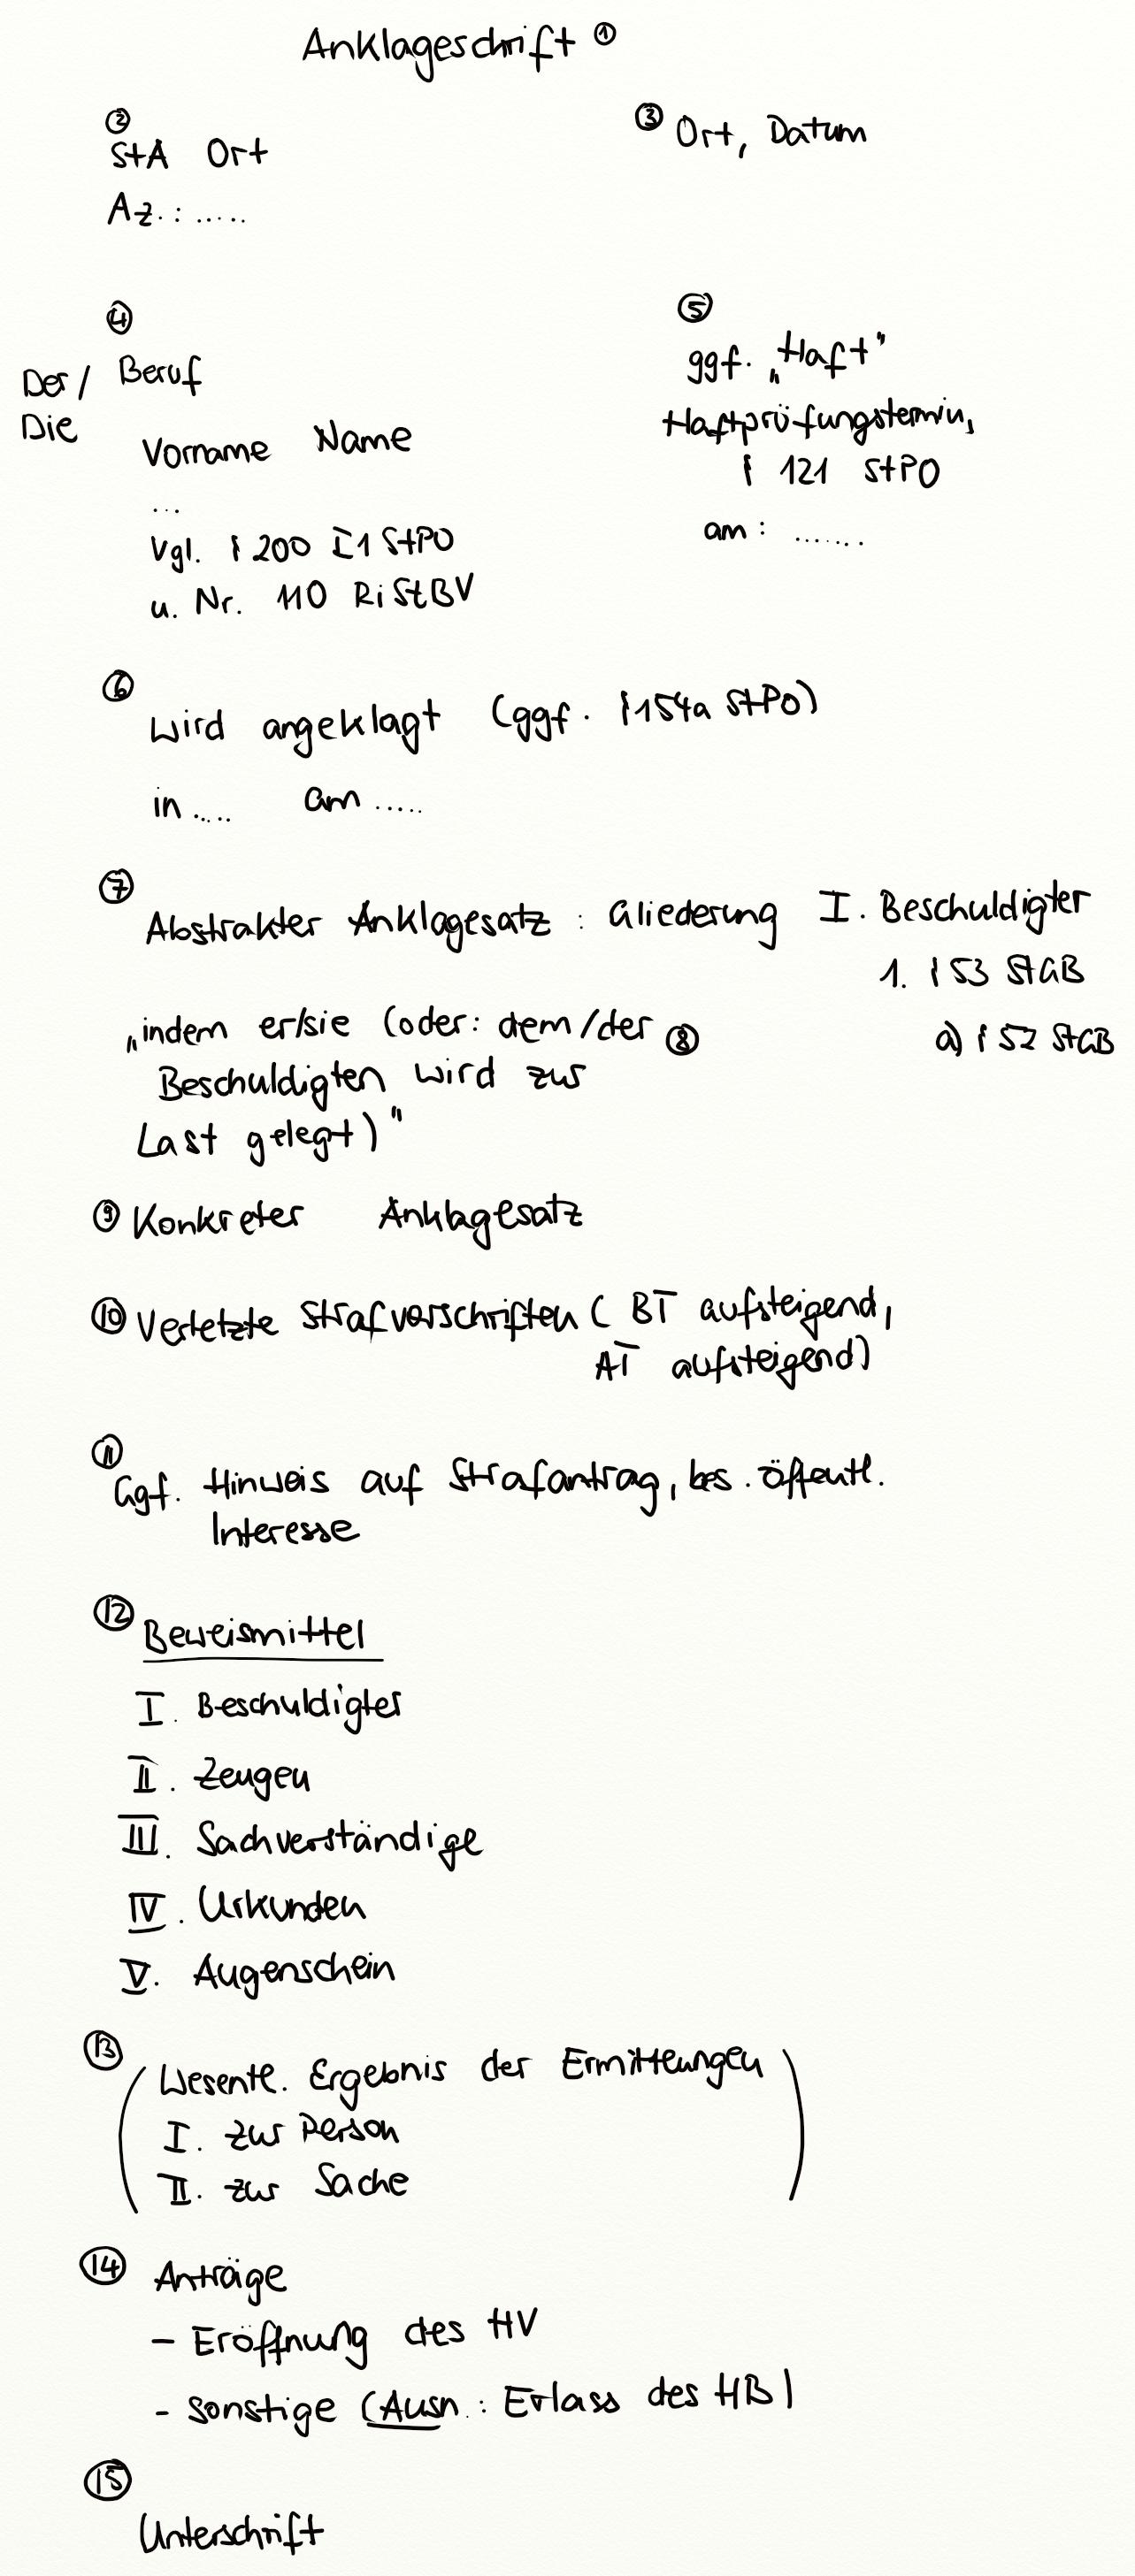 Anklageschrift ①
②
StA Ort
Az.: .....
③ Ort, Datum
④
Der/ Beruf
Die
Vorname Name
...
Vgl. § 200 I 1 StPO
u. Nr. 110 RiStBV
⑤
ggf. „Haft"
Haftprüfungstermin,
§ 121 StPO
am: .......
⑥
wird angeklagt (ggf. § 154a StPO)
in .... am .....
⑦
Abstrakter Anklagesatz : Gliederung I. Beschuldigter
1. § 53 StGB
a) § 52 StGB
„indem er/sie (oder: dem/der ⑧
Beschuldigten wird zur
Last gelegt)"
⑨ Konkreter Anklagesatz
⑩ Verletzte Strafvorschriften ( BT aufsteigend,
AT aufsteigend)
⑪
Ggf. Hinweis auf Strafantrag, bes. öffentl.
Interesse
⑫
Beweismittel
I. Beschuldigter
II. Zeugen
III. Sachverständige
IV. Urkunden
V. Augenschein
⑬
( Wesentl. Ergebnis der Ermittlungen
I. zur Person
II. zur Sache )
⑭ Anträge
- Eröffnung des HV
- Sonstige (Ausn.: Erlass des HB)
⑮
Unterschrift